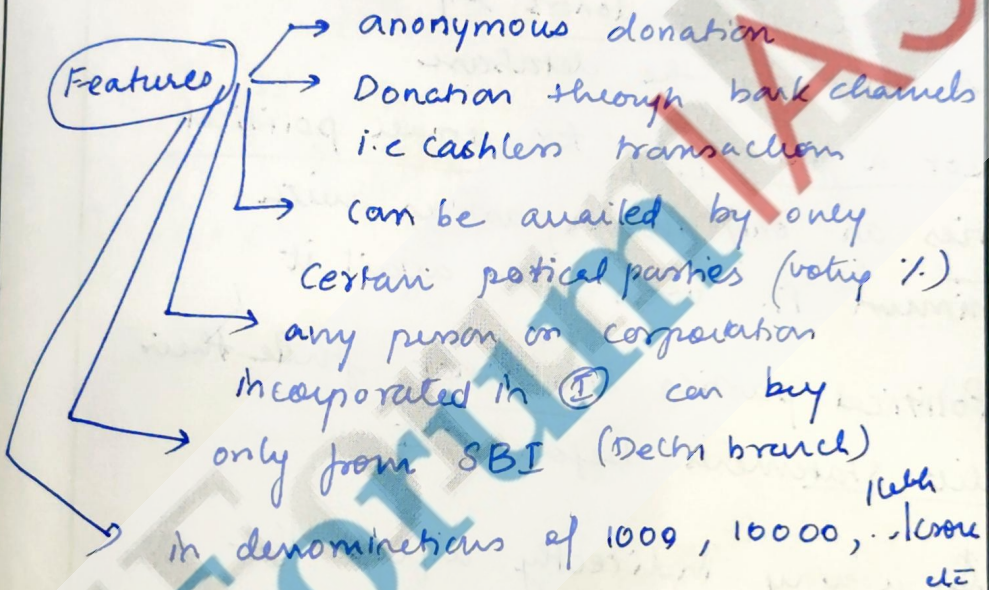 Features
anonymous donation
Donation through bank channels
i.e cashless transactions
can be availed by only
certain potical parties (voting %)
any person or corporation
incorporated in I can buy
only from SBI (Delhi branch)
in denominations of 1000, 10000, 1 lakh .. 1 crore
etc
Forum IAS